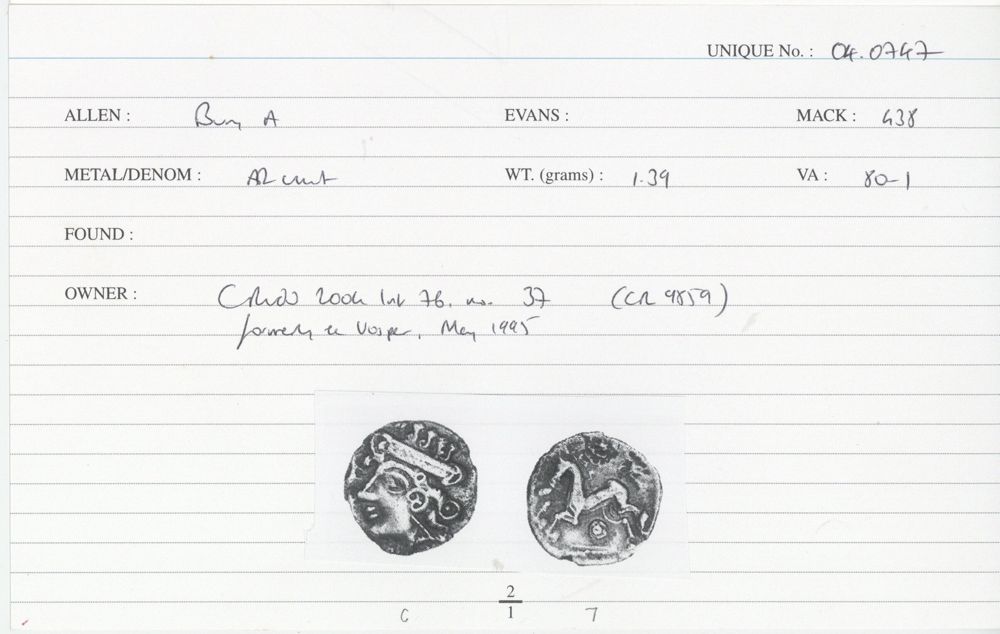 UNIQUE No. : 04.0747
ALLEN : Bury A EVANS : MACK : 438
METAL/DENOM : AR unit WT. (grams) : 1.39 VA : 80-1
FOUND :
OWNER : 2004 list 76, no. 37 (CR 9859)
formerly Vosper, May 1995
2
C 1 7